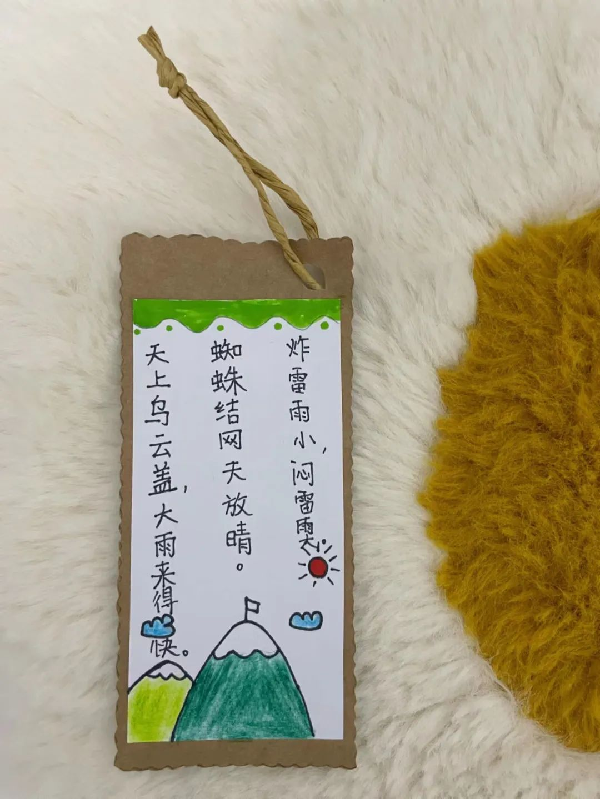 炸雷雨小,闷雷雨大。
蜘蛛结网天放晴。
天上乌云盖,大雨来得快。